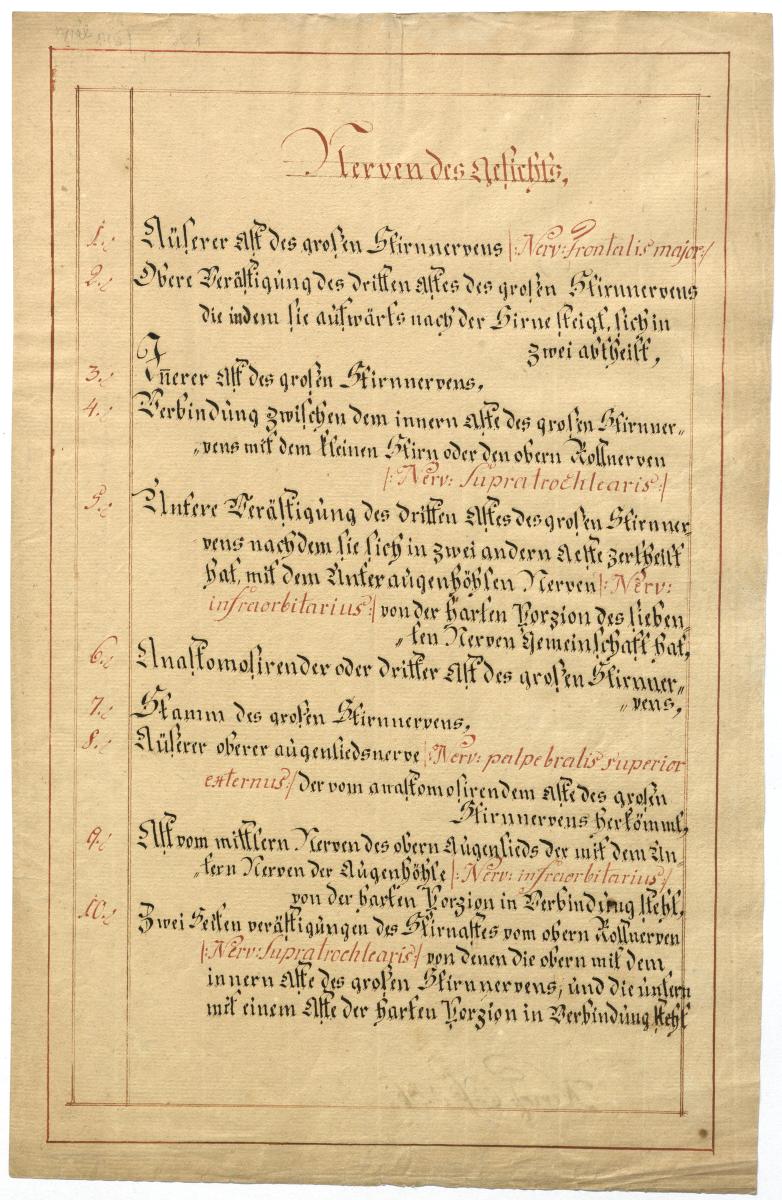 Nerven des Gesichts,
1. Äüserer Ast des großen Stirnnervens /: Nerv: frontalis major :/
2. Obere Verästigung des dritten Astes des großen Stirnnervens
die indem sie aufwärts nach der Sirne steigt, sich in
zwei abtheilt,
3. Inerer Ast des großen Stirnnervens,
4. Verbindung zwischen dem innern Aste des großen Stirnner„
„vens mit dem kleinen Stirn oder den obern Rollnerven
/: Nerv: Supratrochlearis :/
5. Untere Verästigung des dritten Astes des großen Stirnner„
vens nachdem sie sich in zwei andern Aeste zertheilt
hat, mit dem Unter augenhöhlen Nerven /: Nerv:
infraorbitarius :/ von der harten Porzion des sieben„
„ten Nerven Gemeinschaft hat,
6. Anastomosirender oder dritter Ast des großen Stirnner„
„vens,
7. Stamm des großen Stirnnervens,
8. Äüserer oberer augenliedsnerve /: Nerv: palpebralis superior
externus :/ der vom anastomosirendem Aste des großen
Stirnnervens herkömmt,
9. Ast vom mittlern Nerven des obern Augenlieds der mit dem Un„
„tern Nerven der Augenhöhle /: Nerv: infraorbitarius :/
von der harten Porzion in Verbindung steht,
10. Zwei Seiten verästigungen des Stirnastes vom obern Rollnerven
/: Nerv: Supratrochlearis :/ von denen die obern mit dem
innern Aste des großen Stirnnervens, und die untern
mit einem Aste der harten Porzion in Verbindung steht